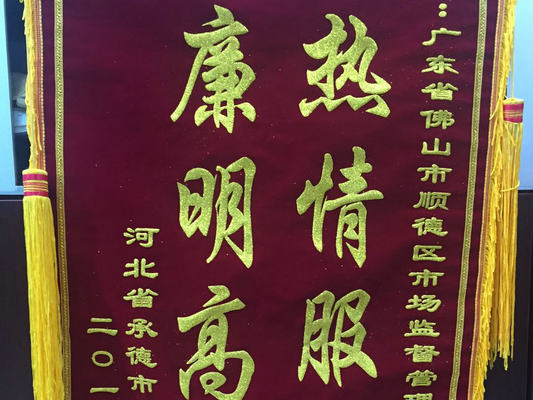 ：广东省佛山市顺德区市场监督管理
热情服
廉明高
河北省承德市
二〇一